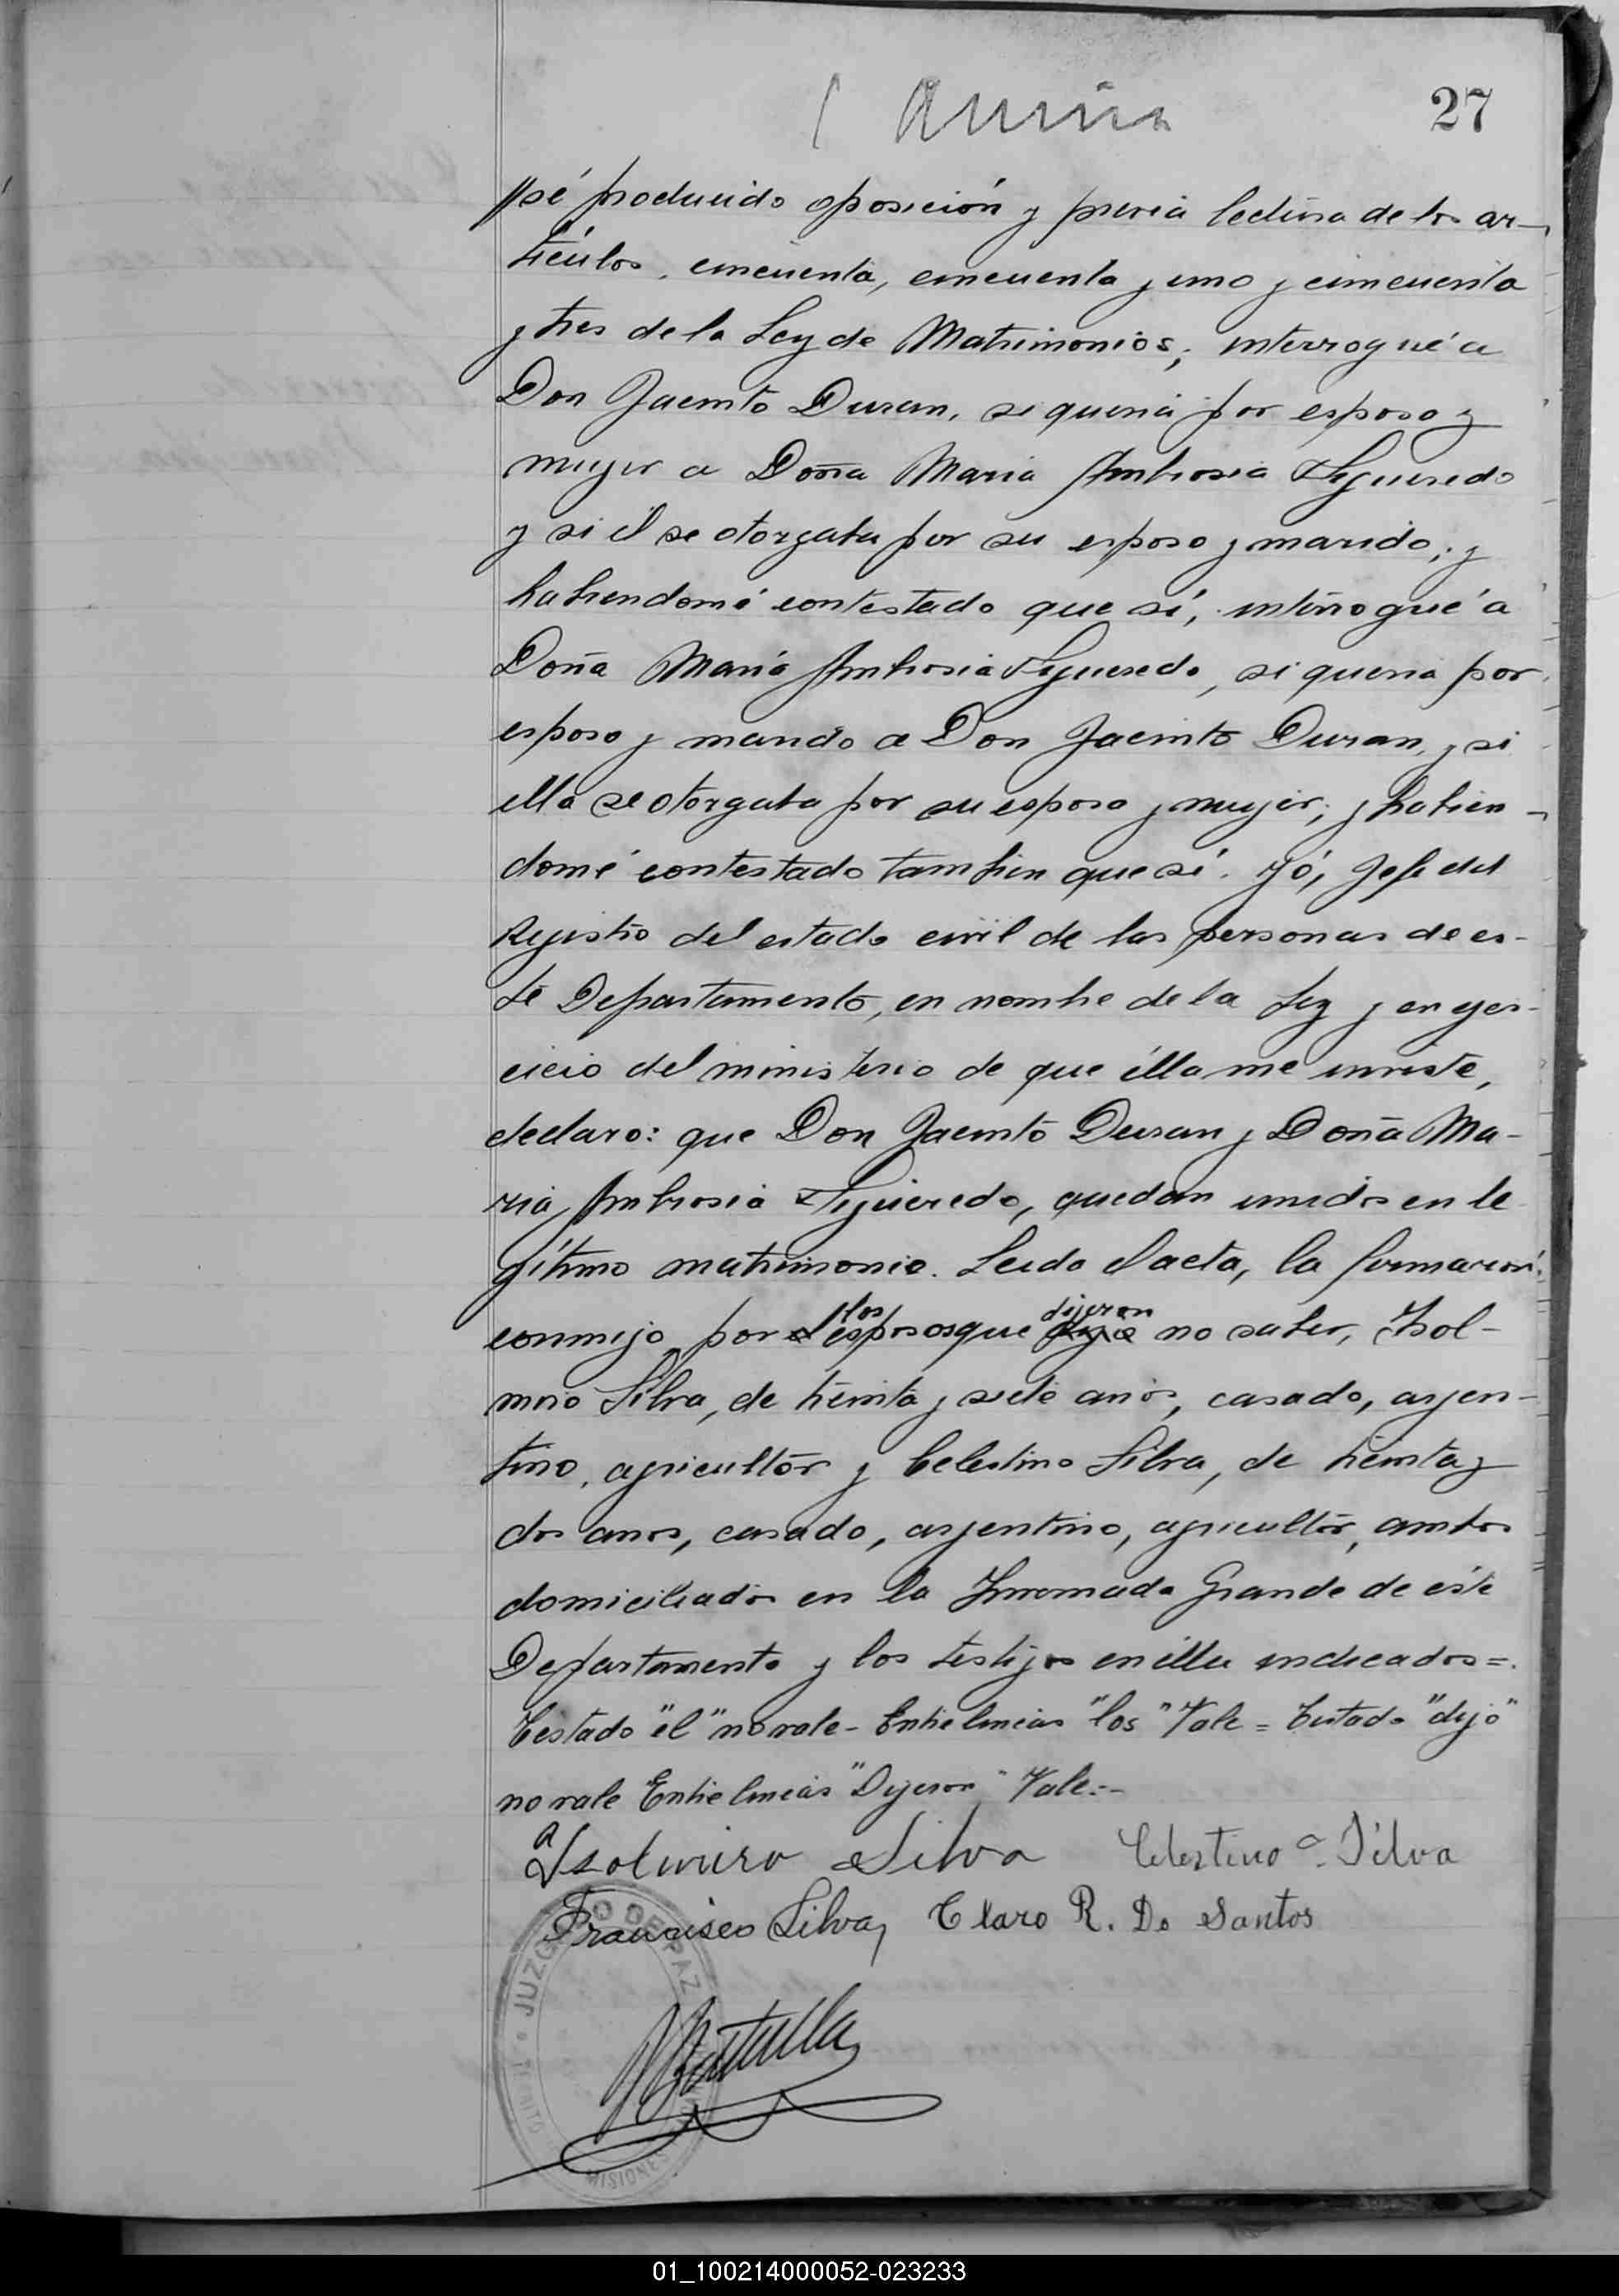 27
sé producido oposición y previa lectura de los ar-
tículos, cincuenta, cincuenta y uno y cincuenta
y tres de la Ley de Matrimonios; interrogué a
Don Jacinto Duran, si queria por esposa y
mujer a Doña Maria Ambrosia Figueredo
y si él se otorgaba por su esposo y marido; y
habiendomé contestado que sí, interrogué a
Doña María Ambrosia Figueredo, si queria por
esposo y marido a Don Jacinto Duran, y si
ella se otorgaba por su esposa y mujer; y habien-
domé contestado tambien que sí. Yó, Jefe del
Registro del estado civil de las personas de es-
te Departamento, en nombre de la Ley y en ejer-
cicio del ministerio de que élla me inviste,
declaro: que Don Jacinto Duran y Doña Ma-
ria Ambrosia Figueredo, quedan unidos en le
gítimo matrimonio. Leida el acta, la firmaron
conmigo por el los esposos que dijo dijeron no saber, Isol-
miro Silva, de treinta y siete años, casado, arjen-
tino, agricultor y Celestino Silva, de treinta y
dos anos, casado, arjentino, agricultor, ambos
domiciliados en la Invernada Grande de éste
Departamento y los testigos en élla indicados=.
Testado "el" no vale- Entrelineas "los" Vale= Testado "dijo"
no vale Entrelineas "Dijeron" Vale:-
Isolmiro Silva Celestino Silva
Francisco Silva, Claro R. Do Santos
JUZGADO DE PAZ
MISIONES
01_100214000052-023233